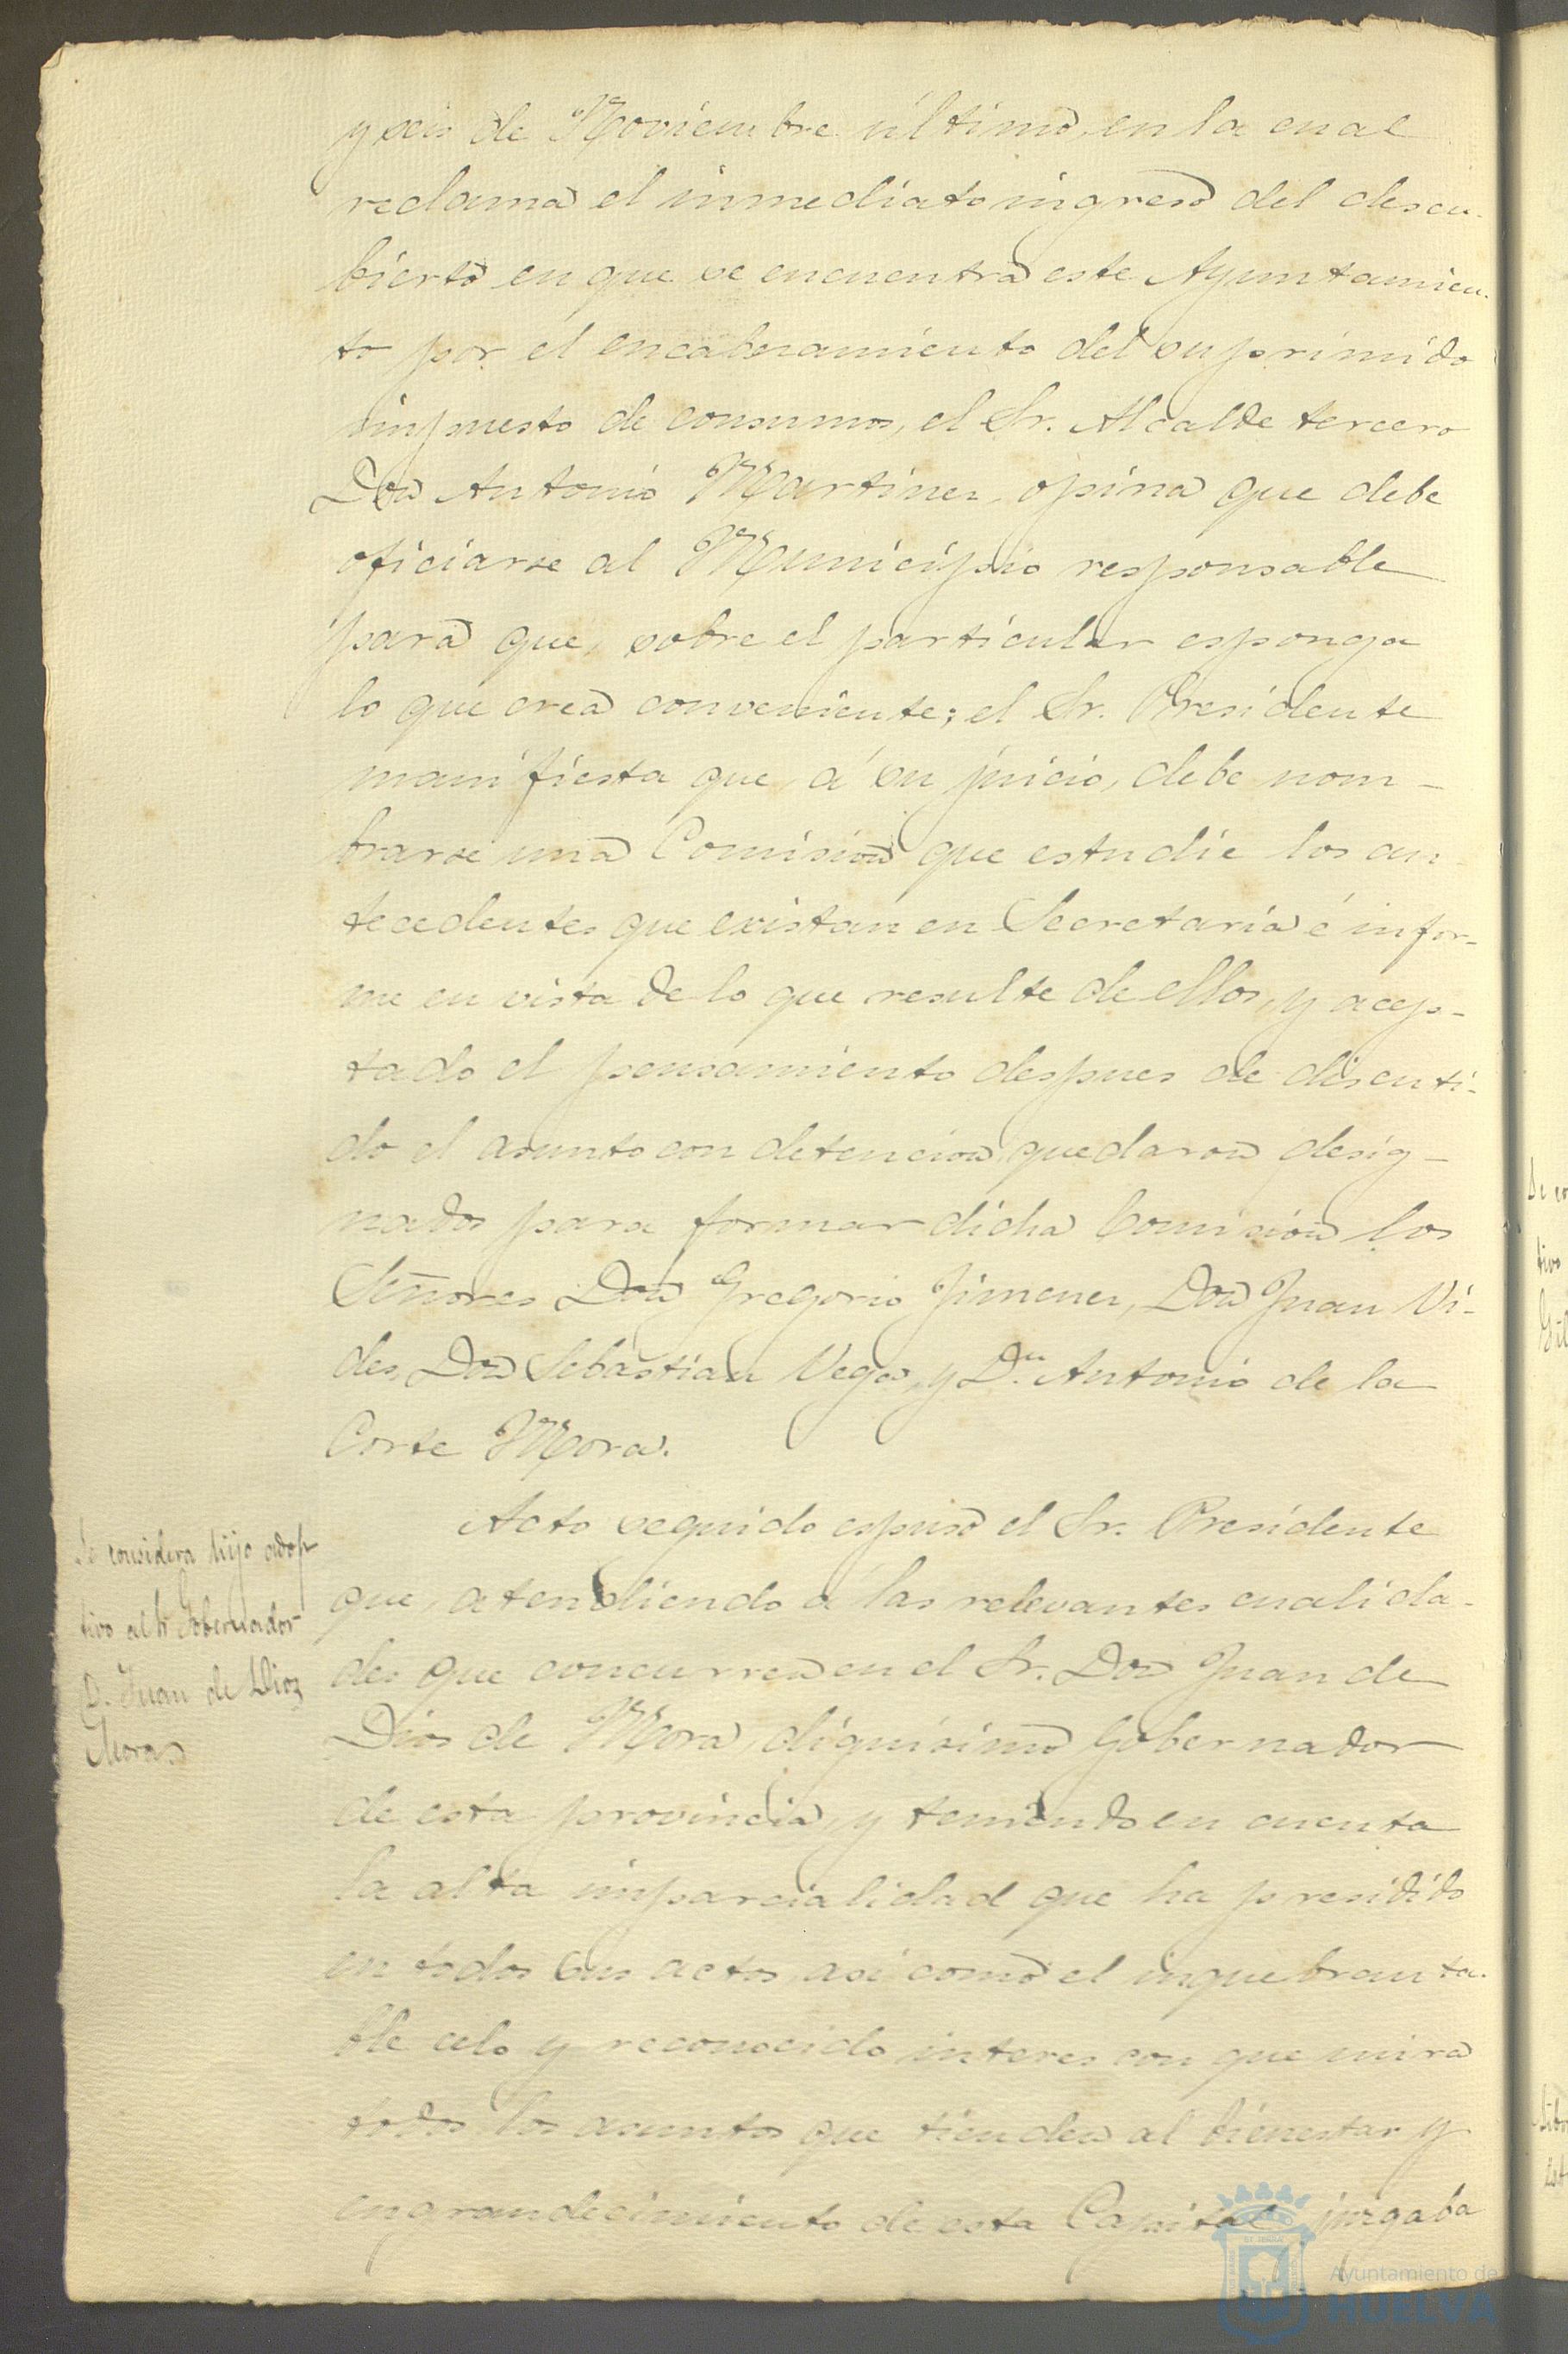 y seis de Noviembre último, en la cual
reclama el inmediato ingreso del descu-
bierto en que se encuentra este Ayuntamien-
to por el encabezamiento del suprimido
impuesto de consumos, el Sr. Alcalde tercero
Don Antonio Martinez, opina que debe
oficiarse al Municipio responsable
para que, sobre el particular esponga
lo que crea conveniente; el Sr. Presidente
manifiesta que, á su juicio, debe nom-
brarse una Comision que estudie los an-
tecedentes que existan en Secretaría é infor-
me en vista de lo que resulte de ellos, y acep-
tado el pensamiento despues de discuti-
do el asunto con detencion, quedaron desig-
nados para formar dicha Comision los
Señores Don Gregorio Jimenez, Don Juan Vi-
des, Don Sebastian Vegas, y Dn. Antonio de la
Corte Mora.
Se considera hijo adop
tivo al Sr Gobernador
D. Juan de Dios
Mora
Acto seguido espuso el Sr. Presidente
que, atendiendo á las relevantes cualida-
des que concurren en el Sr. Don Juan de
Dios de Mora, dignisimo Gobernador
de esta provincia, y teniendo en cuenta
la alta imparcialidad que ha presidido
en todos sus actos, asi como el inquebranta-
ble celo y reconocido interes con que mira
todos los asuntos que tienden al bienestar y
engrandecimiento de esta Capital juzgaba
Ayuntamiento de
HUELVA